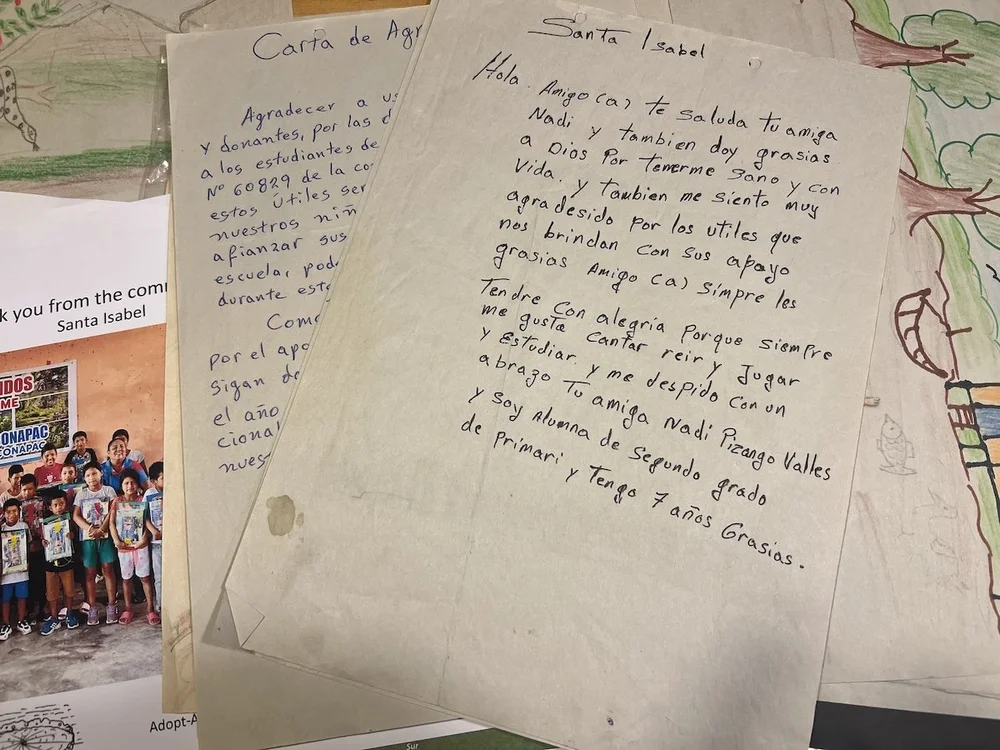 Santa Isabel
Hola. Amigo (a) te saluda tu amiga
Nadi y tambien doy grasias
a Dios Por tenerme sano y con
Vida. y tambien me siento muy
agradesido por los utiles que
nos brindan con sus apoyo
grasias Amigo (a) simpre les
Tendre con alegría porque siempre
me gusta cantar reir y Jugar
y Estudiar. y me despido con un
abrazo Tu amiga Nadi Pizango Valles
y soy Alumna de segundo grado
de primari y Tengo 7 años Grasias.
Carta de Agr
Agradecer a us
y donantes, por las d
a los estudiantes de
Nº 60829 de la co
estos útiles ser
nuestros niñ
afianzar sus
escuela, pod
durante est
Com
por el apo
sigan de
el año
cional
nues
k you from the com
Santa Isabel
IDOS
ME
ONAPAC
CONAPAC
Adopt-A
Sur